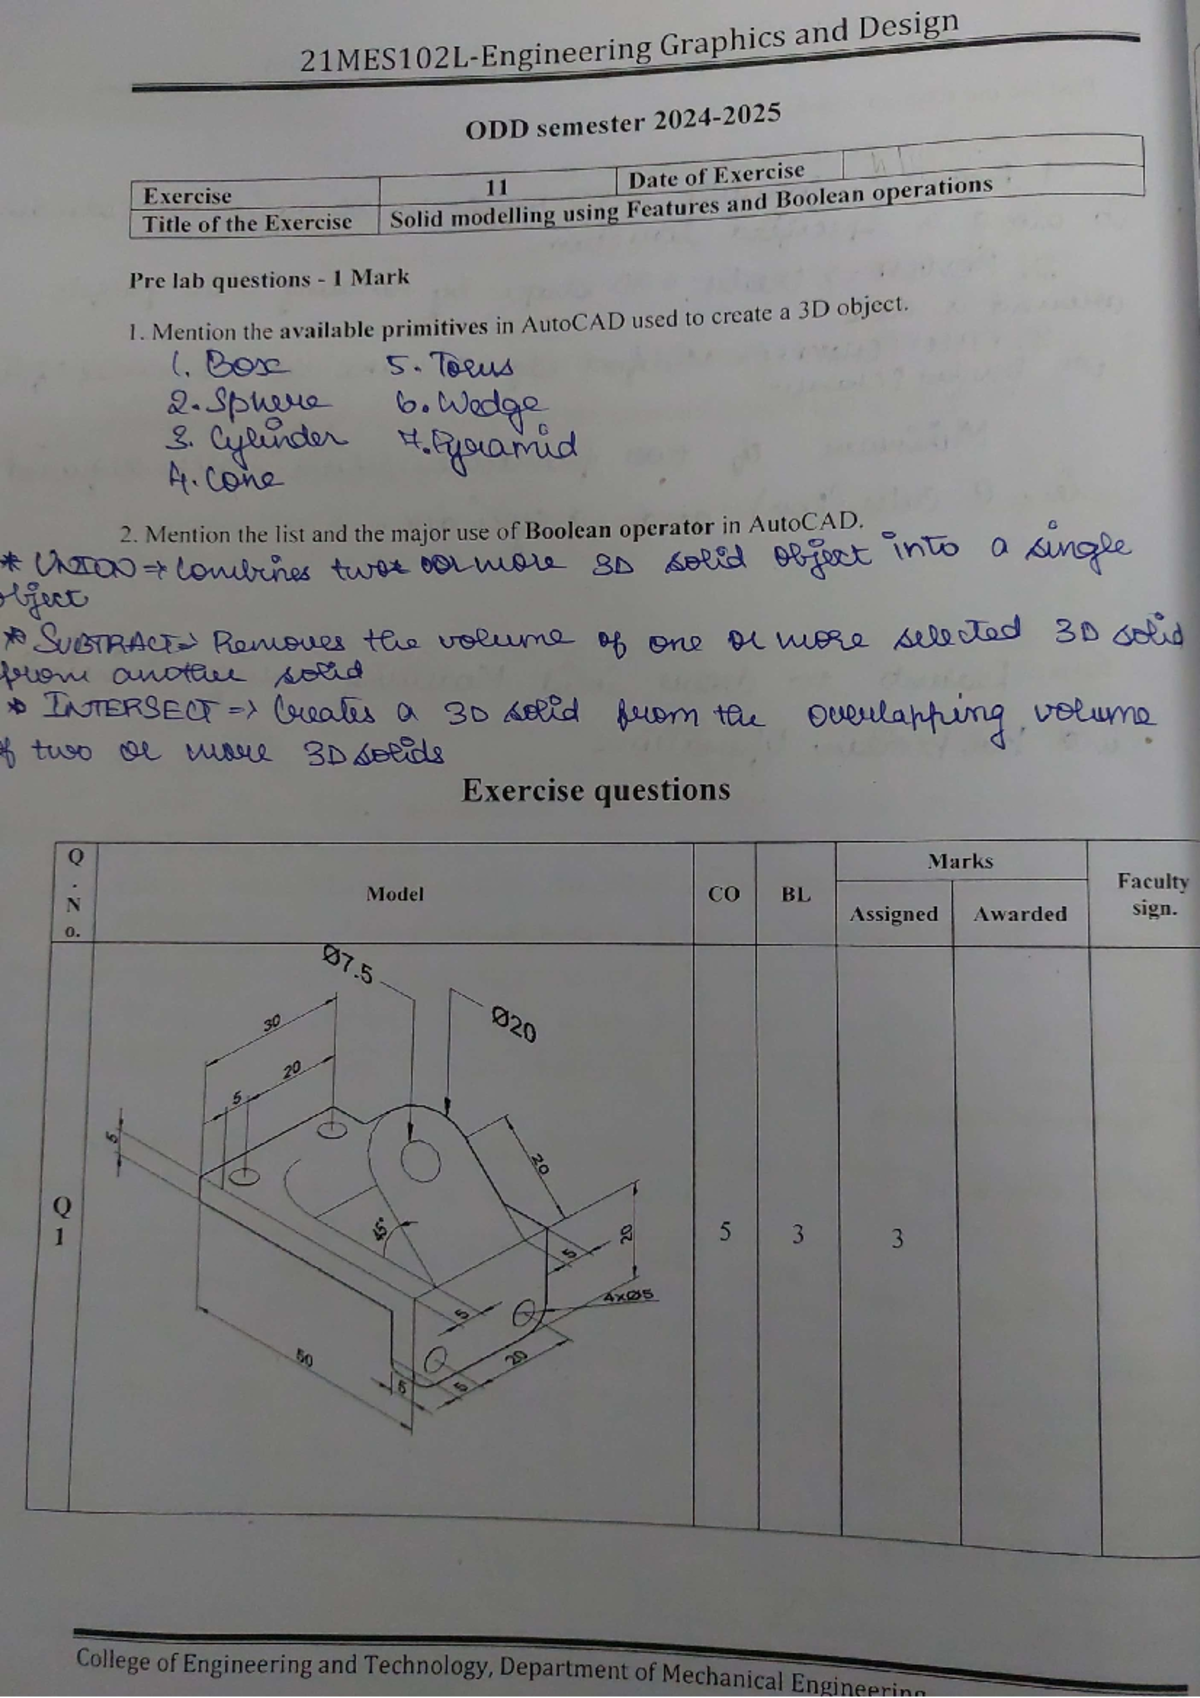 21MES102L-Engineering Graphics and Design
ODD semester 2024-2025
Exercise 11 Date of Exercise
Title of the Exercise Solid modelling using Features and Boolean operations
Pre lab questions - 1 Mark
1. Mention the available primitives in AutoCAD used to create a 3D object.
1. Box 5. Torus
2. Sphere 6. Wedge
3. Cylinder 7. Pyramid
4. Cone
2. Mention the list and the major use of Boolean operator in AutoCAD.
* UNION => Combines two or more 3D solid object into a single
object
* SUBTRACT => Removes the volume of one or more selected 3D solid
from another solid
* INTERSECT => Creates a 3D solid from the overlapping volume
of two or more 3D solids
Exercise questions
Q.No. Model CO BL Marks Faculty sign.
Assigned Awarded
Q1 5 3 3
Ø7.5
Ø20
30
20
5
5
20
45°
5
20
4xØ5
5
20
50
5
5
College of Engineering and Technology, Department of Mechanical Engineering